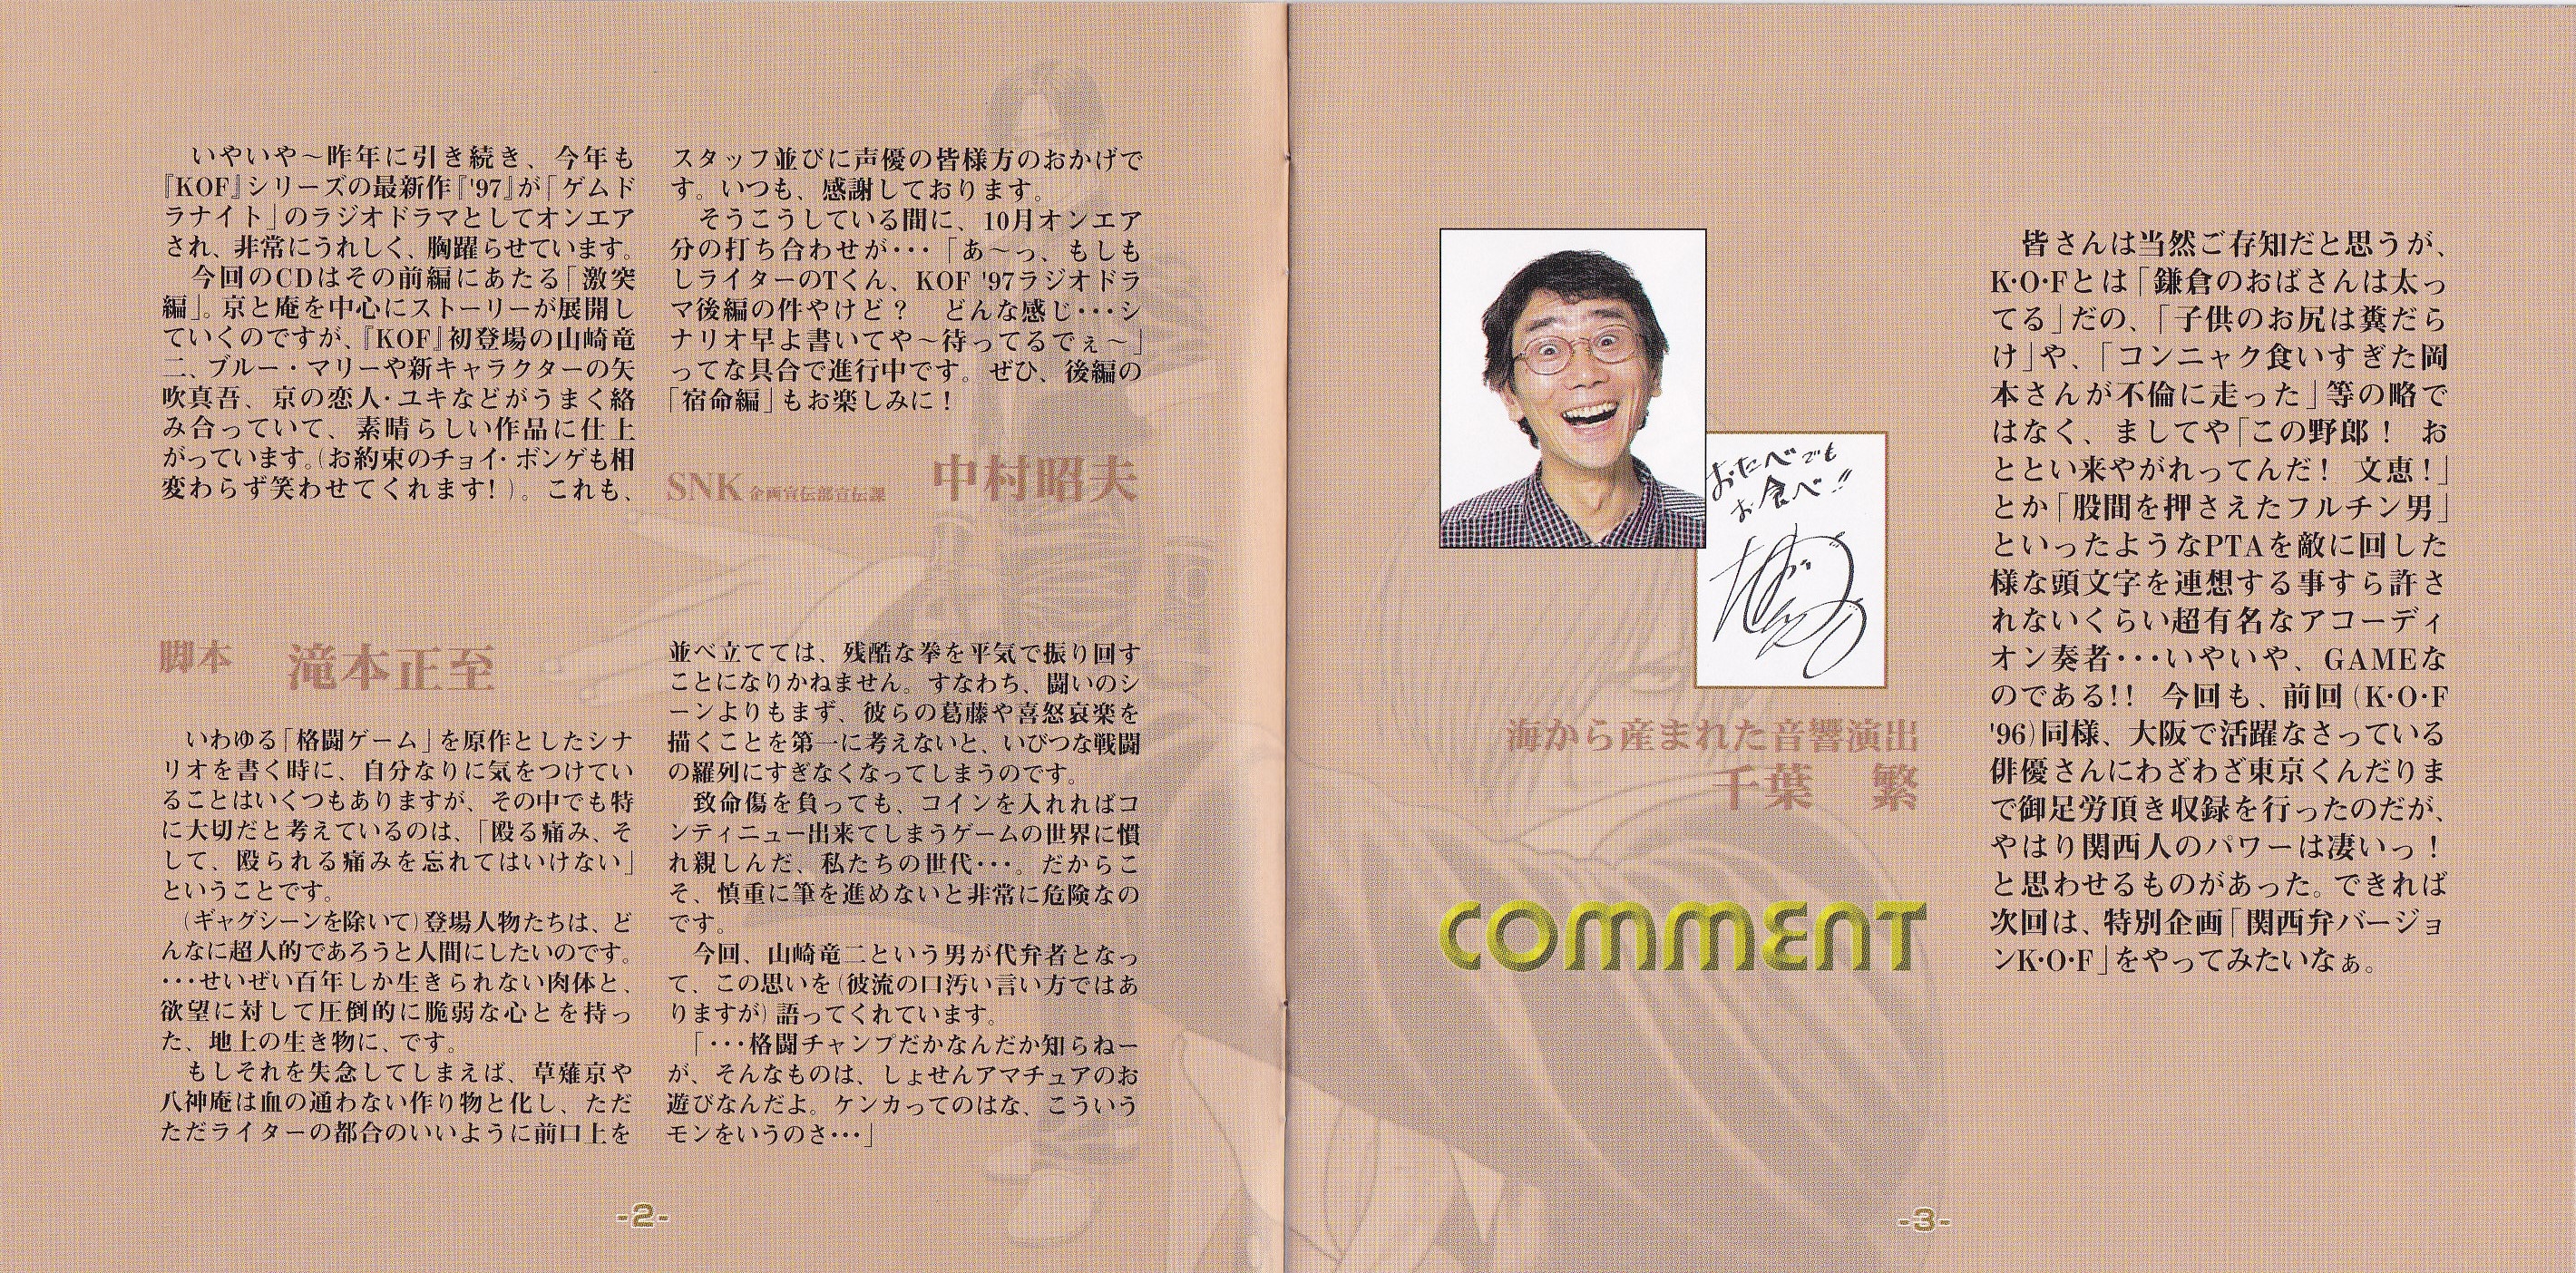 いやいや～昨年に引き続き、今年も
『KOF』シリーズの最新作『'97』が「ゲムド
ラナイト」のラジオドラマとしてオンエア
され、非常にうれしく、胸躍らせています。
今回のCDはその前編にあたる「激突
編」。京と庵を中心にストーリーが展開し
ていくのですが、『KOF』初登場の山崎竜
二、ブルー・マリーや新キャラクターの矢
吹真吾、京の恋人・ユキなどがうまく絡
み合っていて、素晴らしい作品に仕上
がっています。(お約束のチョイ・ボンゲも相
変わらず笑わせてくれます!)。これも、
スタッフ並びに声優の皆様方のおかげで
す。いつも、感謝しております。
そうこうしている間に、10月オンエア
分の打ち合わせが･･･「あ～っ、もしも
しライターのTくん、KOF '97ラジオドラ
マ後編の件やけど？　どんな感じ･･･シ
ナリオ早よ書いてや～待ってるでぇ～」
ってな具合で進行中です。ぜひ、後編の
「宿命編」もお楽しみに！
SNK 企画宣伝部宣伝課　中村昭夫
脚本　滝本正至
いわゆる「格闘ゲーム」を原作としたシナ
リオを書く時に、自分なりに気をつけてい
ることはいくつもありますが、その中でも特
に大切だと考えているのは、「殴る痛み、そ
して、殴られる痛みを忘れてはいけない」
ということです。
(ギャグシーンを除いて)登場人物たちは、ど
んなに超人的であろうと人間にしたいのです。
･･･せいぜい百年しか生きられない肉体と、
欲望に対して圧倒的に脆弱な心とを持っ
た、地上の生き物に、です。
もしそれを失念してしまえば、草薙京や
八神庵は血の通わない作り物と化し、ただ
ただライターの都合のいいように前口上を
並べ立てては、残酷な拳を平気で振り回す
ことになりかねません。すなわち、闘いのシ
ーンよりもまず、彼らの葛藤や喜怒哀楽を
描くことを第一に考えないと、いびつな戦闘
の羅列にすぎなくなってしまうのです。
致命傷を負っても、コインを入れればコ
ンティニュー出来てしまうゲームの世界に慣
れ親しんだ、私たちの世代･･･。だからこ
そ、慎重に筆を進めないと非常に危険なの
です。
今回、山崎竜二という男が代弁者となっ
て、この思いを(彼流の口汚い言い方ではあ
りますが)語ってくれています。
「･･･格闘チャンプだかなんだか知らねー
が、そんなものは、しょせんアマチュアのお
遊びなんだよ。ケンカってのはな、こういう
モンをいうのさ･･･」
-2-
おたべでも
お食べ!!
海から産まれた音響演出
千葉　繁
COMMENT
皆さんは当然ご存知だと思うが、
K・O・Fとは「鎌倉のおばさんは太っ
てる」だの、「子供のお尻は糞だら
け」や、「コンニャク食いすぎた岡
本さんが不倫に走った」等の略で
はなく、ましてや「この野郎！　お
ととい来やがれってんだ！　文恵！」
とか「股間を押さえたフルチン男」
といったようなPTAを敵に回した
様な頭文字を連想する事すら許さ
れないくらい超有名なアコーディ
オン奏者･･･いやいや、GAMEな
のである!!　今回も、前回(K・O・F
'96)同様、大阪で活躍なさっている
俳優さんにわざわざ東京くんだりま
で御足労頂き収録を行ったのだが、
やはり関西人のパワーは凄いっ！
と思わせるものがあった。できれば
次回は、特別企画「関西弁バージョ
ンK・O・F」をやってみたいなぁ。
-3-